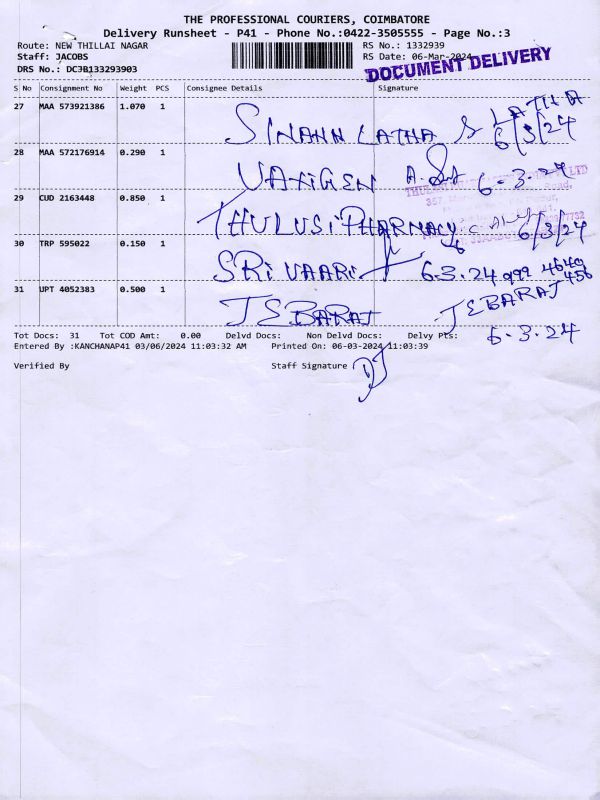 THE PROFESSIONAL COURIERS, COIMBATORE
Delivery Runsheet - P41 - Phone No.:0422-3505555 - Page No.:3
Route: NEW THILLAI NAGAR RS No.: 1332939
Staff: JACOBS RS Date: 06-Mar-2024
DRS No.: DC3B133293903 DOCUMENT DELIVERY
S No Consignment No Weight PCS Consignee Details Signature
27 MAA 573921386 1.070 1 LATHA
SINANN LATHA 6/3/24
28 MAA 572176914 0.290 1
VAXIGEN 6-3-24
29 CUD 2163448 0.850 1
THULUSI PHARMACY 6/3/24
30 TRP 595022 0.150 1
SRI VAARI 6.3.24 999 4640
456
31 UPT 4052383 0.500 1
JEBARAJ JEBARAJ
6-3-24
Tot Docs: 31 Tot COD Amt: 0.00 Delvd Docs: Non Delvd Docs: Delvy Pts:
Entered By :KANCHANAP41 03/06/2024 11:03:32 AM Printed On: 06-03-2024 11:03:39
Verified By Staff Signature